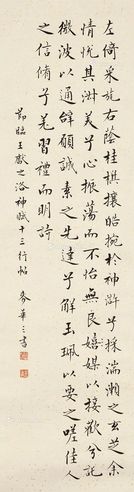 左倚采旄右蔭桂棋攘皓捥於神滸兮採湍瀨之玄芝余
情悅其淑美兮心振蕩而不怡無良媒以接歡兮託
微波以通辭願誠素之先達兮解玉珮以要之嗟佳人
之信脩兮羌習禮而明詩
節臨王獻之洛神賦十三行帖